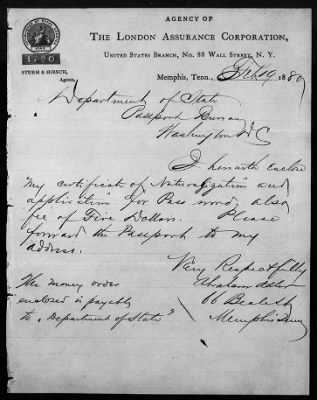 AGENCY OF
THE LONDON ASSURANCE CORPORATION,
UNITED STATES BRANCH, No. 88 WALL STREET, N. Y.
1720
STURM & HIRSCH,
Agents.
Memphis, Tenn., Feb 19 1889
Department of State
Passport Bureau
Washington D C
I herewith Enclose
My certificate of Naturalization and
application for Pass also
fee of Five Dollars. Please
forward the Passport to my
address.
Very Respectfully
Abraham
66 Beale St
Memphis Tenn
The money order
enclosed is payable
to "Department of State"